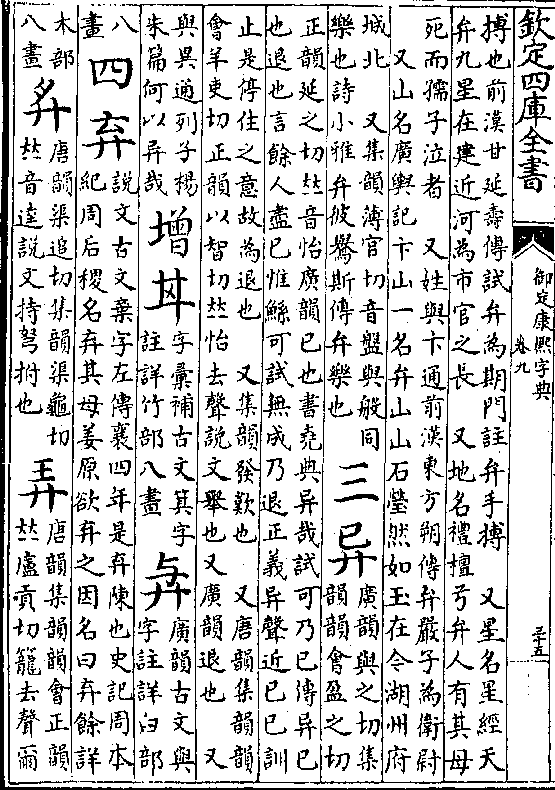 欽定四庫全書
御定康熙字典
卷九
三十五
搏也前漢甘延壽傳試弁為期門註弁手搏　又星名星經天
弁九星在建近河為市官之長　又地名禮檀弓弁人有其母
死而孺子泣者　又姓與卞通前漢東方朔傳弁嚴子為衛尉
又山名廣輿記卞山一名弁山山石瑩然如玉在今湖州府
城北　又集韻薄官切音盤與般同
樂也詩小雅弁彼鸒斯傳弁樂也
三
异
廣韻與之切集
韻韻會盈之切
正韻延之切𠀤音怡廣韻已也書堯典异哉試可乃已傳异已
也退也言餘人盡已惟鯀可試無成乃退正義异聲近已已訓
止是停住之意故為退也　又集韻發歎也　又唐韻集韻韻
會羊吏切正韻以智切𠀤怡去聲說文舉也　又廣韻退也　又
與異通列子楊
朱篇何以异哉
增
字彙補古文箕字
註詳竹部八畫
廣韻古文與
字註詳臼部
八
畫
四
弃
說文古文棄字左傳襄四年是弃陳也史記周本
紀周后稷名弃其母姜原欲弃之因名曰弃餘詳
木部
八畫
唐韻渠追切集韻渠龜切
𠀤音逵說文持弩拊也
弄
唐韻集韻韻會正韻
𠀤盧貢切籠去聲爾